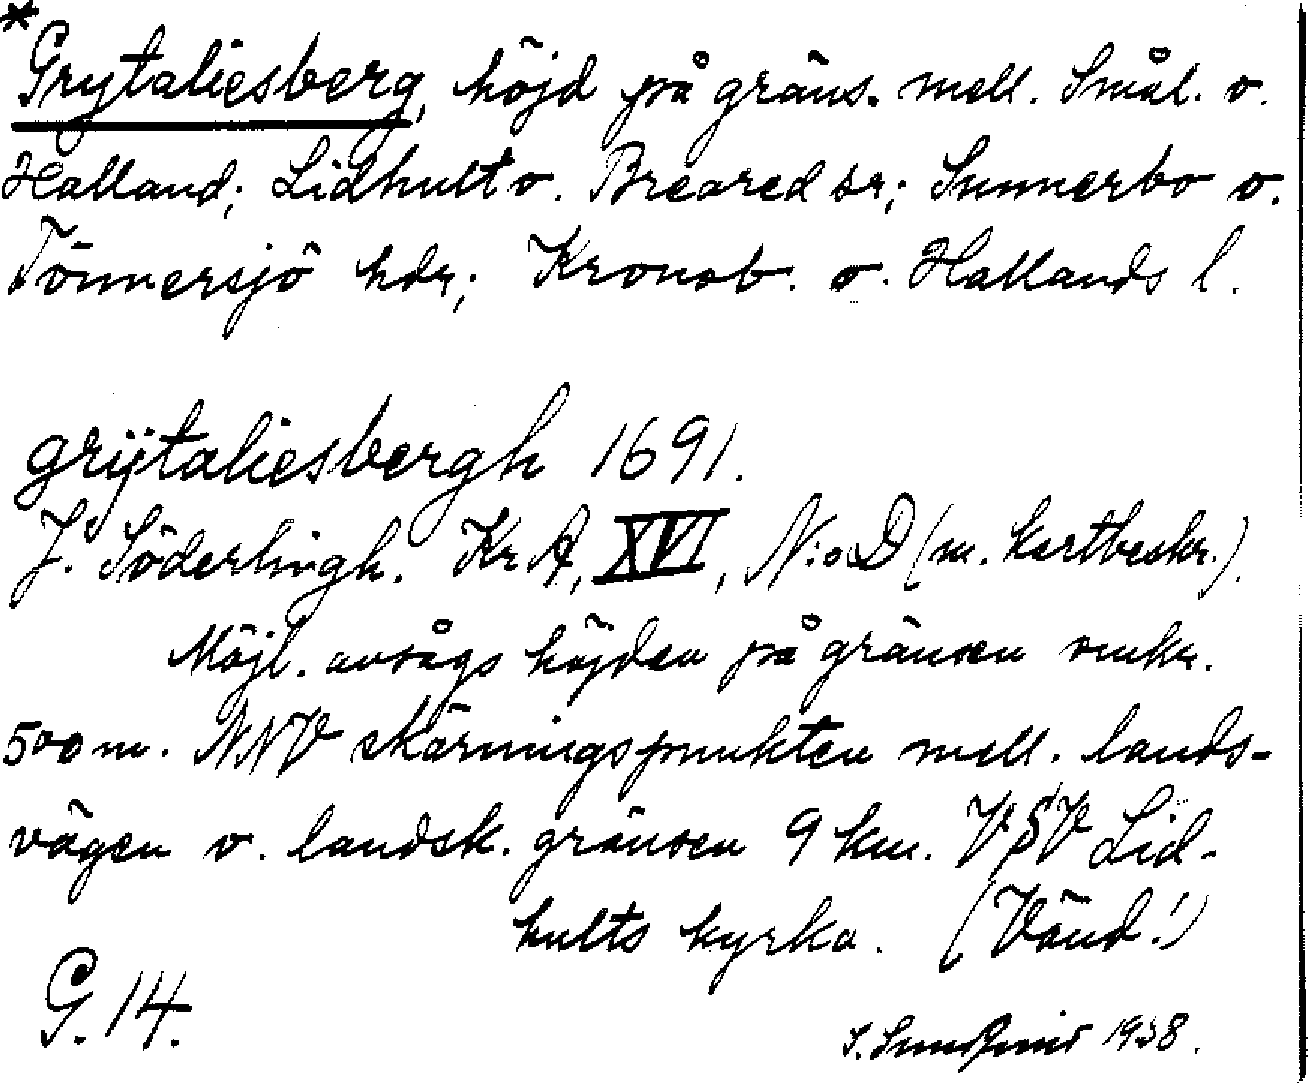 *Grytaliesberg, höjd på gräns. mell. Smål. o.
Halland; Lidhult o. Breared snr; Sunnerbo o.
Tönnersjö hdr; Kronob. o. Hallands l.
grÿtaliesbergh 1691.
J. Söderlingh. Kr A, XVI, N:o D (m. kartbeskr.).
Möjl. avsågs höjden på gränsen omkr.
500 m. NNV skärningspunkten mell. lands-
vägen o. landsk. gränsen 9 km. VSV Lid-
hults kyrka. (Vänd!)
G. 14.
1938.